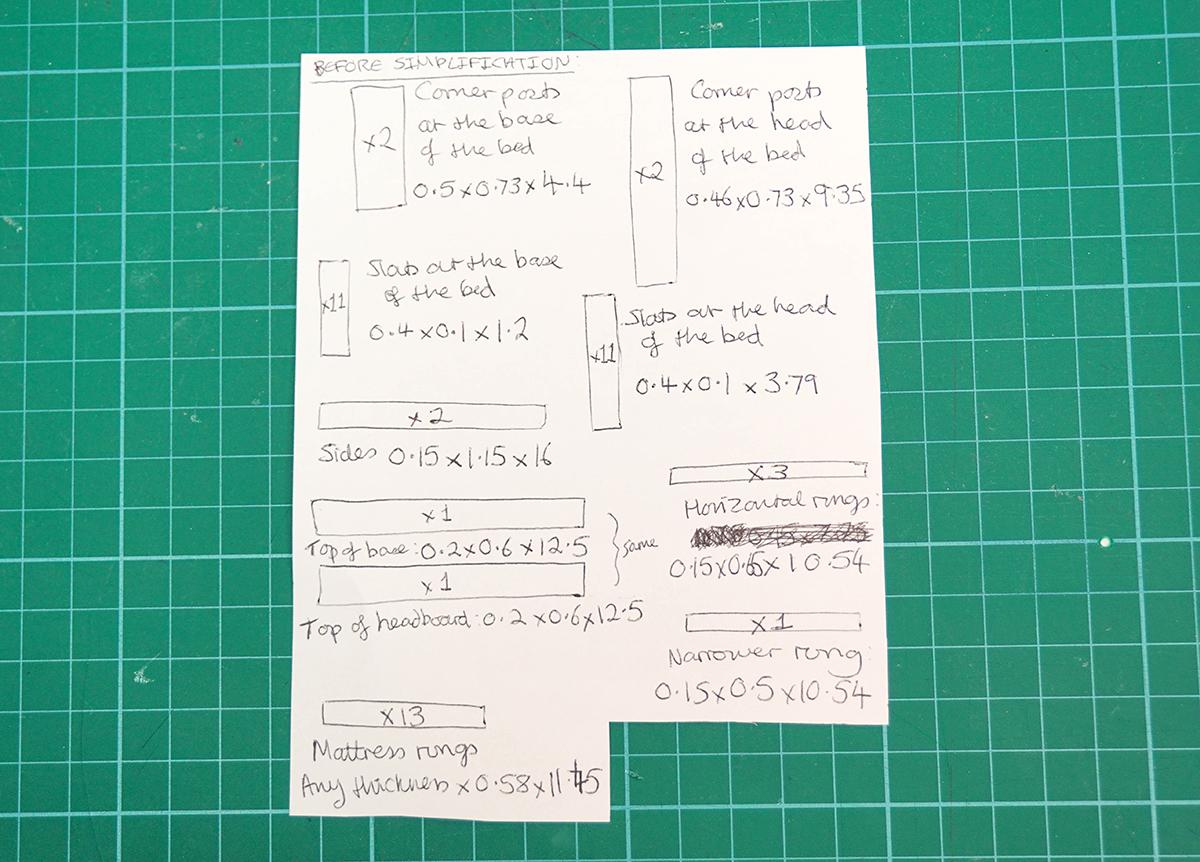 BEFORE SIMPLIFICATION:
x2
Corner posts
at the base
of the bed
0.5x0.73x4.4
x2
Corner posts
at the head
of the bed
0.46x0.73x9.35
x11
Slats at the base
of the bed
0.4x0.1x1.2
x11
Slats at the head
of the bed
0.4x0.1x3.79
x2
Sides 0.15x1.15x16
x1
Top of base: 0.2x0.6x12.5
x1
Top of headboard: 0.2x0.6x12.5
same
x3
Horizontal rungs:
0.15x0.65x10.54
x1
Narrower rung:
0.15x0.5x10.54
x13
Mattress rungs
Any thickness x0.58x